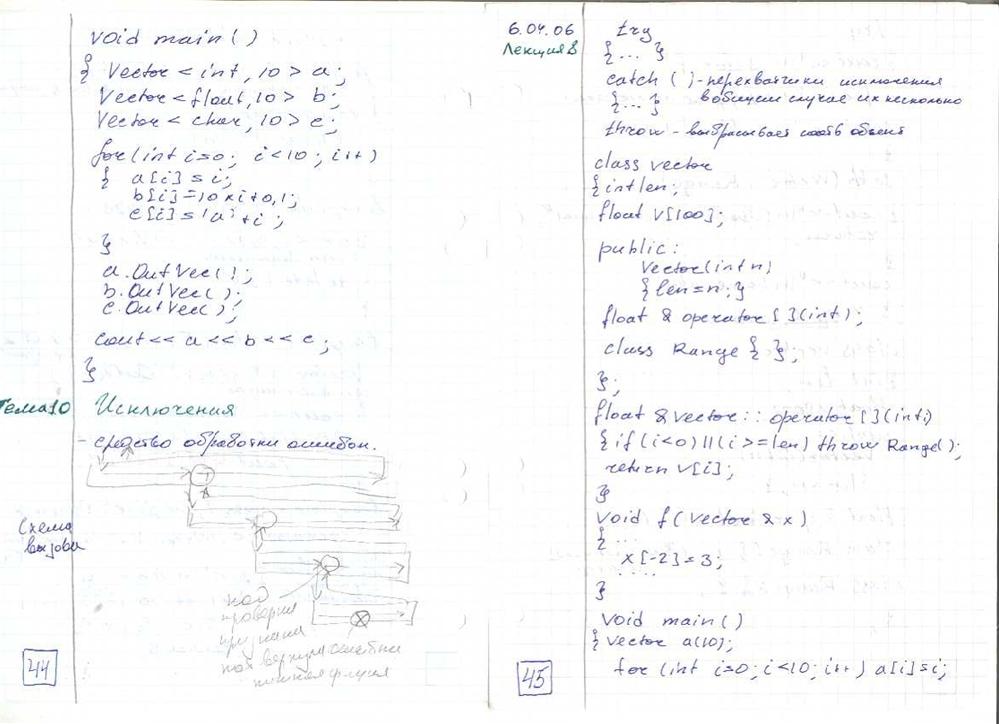 void main()
{ Vector<int, 10> a;
Vector<float, 10> b;
Vector<char, 10> c;
for(int i=0; i<10; i++)
{ a[i]=i;
b[i]=10*i+0,1;
c[i]='a'+i;
}
a.OutVec();
b.OutVec();
c.OutVec();
cout<< a << b << c;
}
Тема10 Исключения
- средство обработки ошибок.
Схема
вызова
код
проверки
признака
вернула ошибки
функция
44
6.04.06
Лекция 8
try
{ ... }
catch ( ) - перехватчики исключения
{ ... } в общем случае их несколько
throw - выбрасывает объект
class vector
{ int len;
float v[100];
public:
Vector(int n)
{ len=n; }
float & operator [](int);
class Range { };
};
float & vector :: operator [](int i)
{ if (i<0) || (i>=len) throw Range();
return v[i];
}
void f( vector & x)
{ ...
x[-2]=3;
....
}
void main()
{ vector a(10);
for (int i=0; i<10; i++) a[i]=i;
45